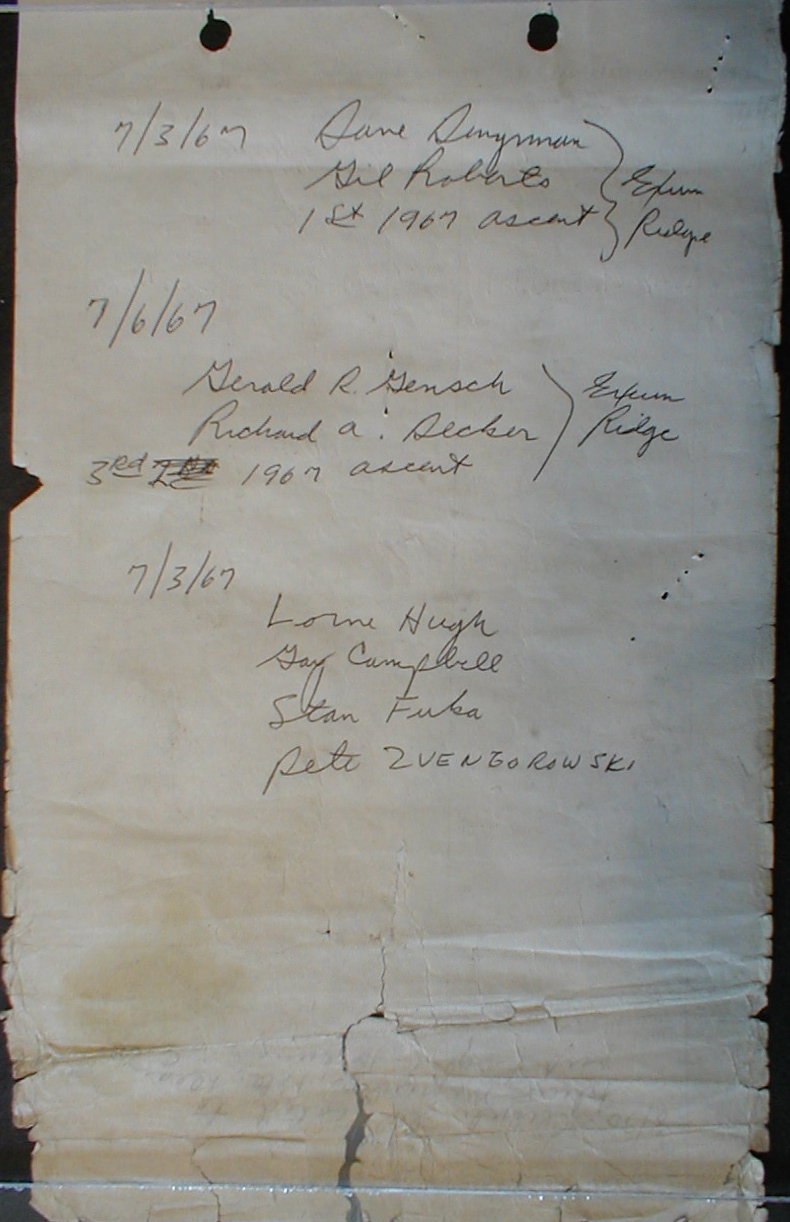 7/3/67 Dave Dingman
Gil Roberts
1st 1967 ascent
Exum
Ridge
7/6/67
Gerald R. Gensch
Richard A. Decker
Exum
Ridge
3rd 1967 ascent
7/3/67
Lorne Hugh
Gay Campbell
Stan Fuka
Pete ZVENGOROWSKI